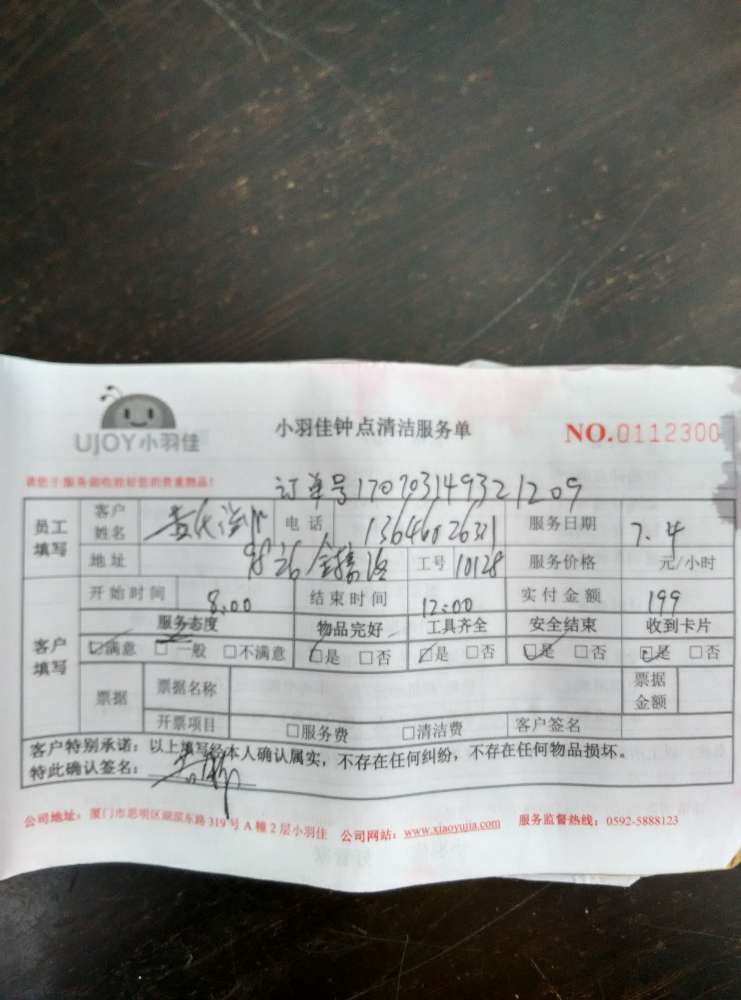 UJOY小羽佳
小羽佳钟点清洁服务单
NO.0112300
请您于服务前收拾好您的贵重物品!
订单号170703149321209
员工填写 客户姓名 电话 13646026321 服务日期 7.4
地址 工号 10128 服务价格 元/小时
开始时间 8:00 结束时间 12:00 实付金额 199
客户填写 服务态度 物品完好 工具齐全 安全结束 收到卡片
☑满意 □一般 □不满意 ☑是 □否 ☑是 □否 ☑是 □否 ☑是 □否
票据 票据名称 票据金额
开票项目 □服务费 □清洁费 客户签名
客户特别承诺:以上填写经本人确认属实,不存在任何纠纷,不存在任何物品损坏。
特此确认签名:
公司地址:厦门市思明区湖滨东路319号A幢2层小羽佳 公司网站:www.xiaoyujia.com 服务监督热线:0592-5888123